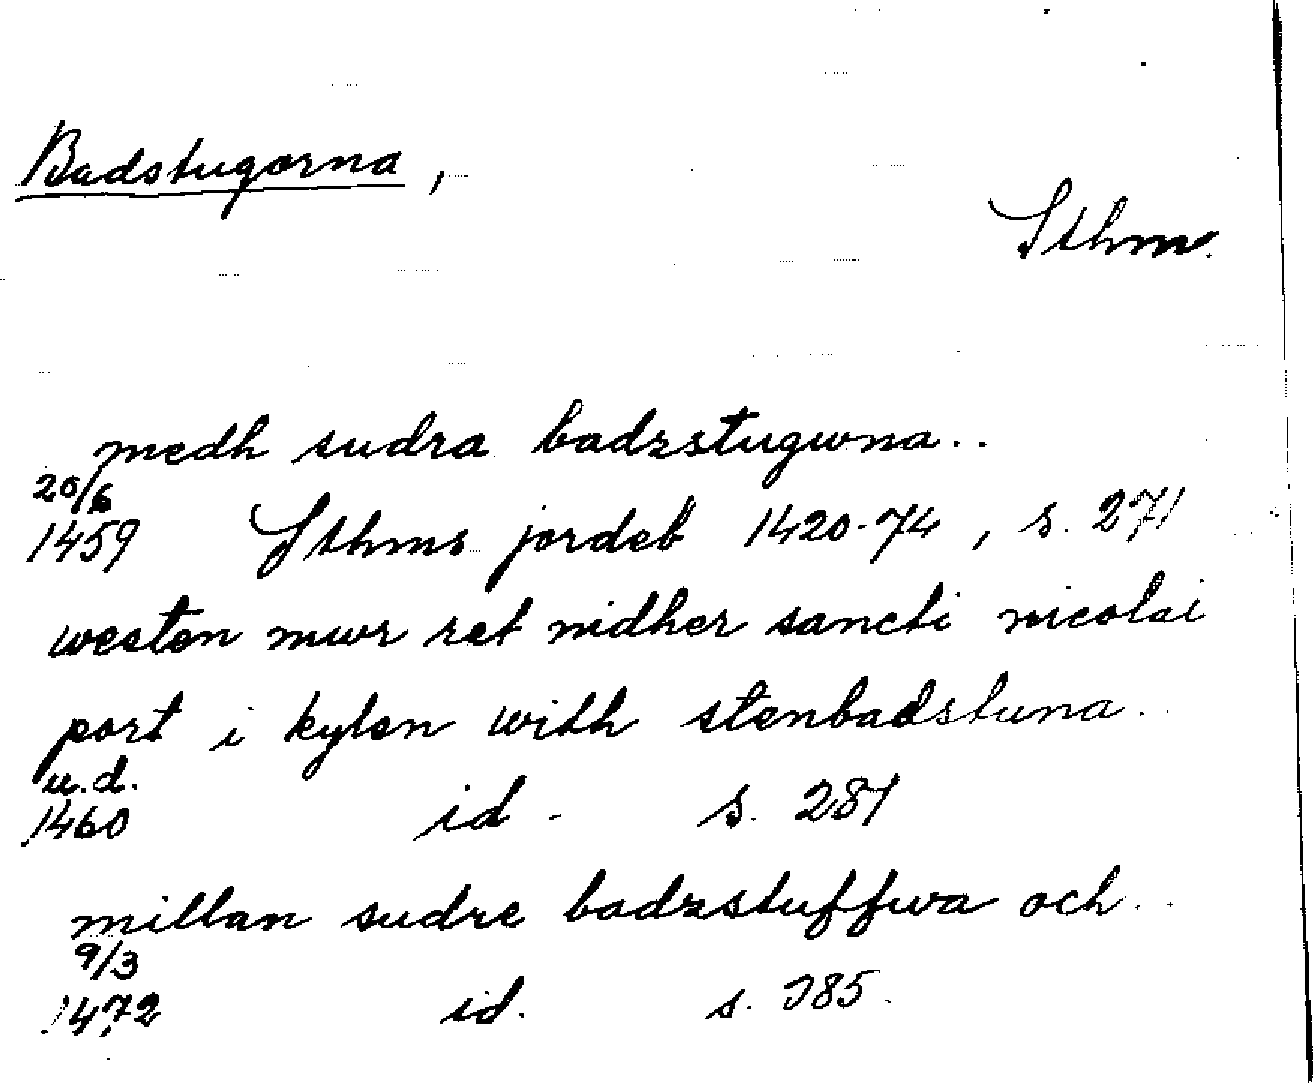 Badstugorna,
Sthm.
medh sudra badzstugwna..
20/6
1459 Sthms jordeb 1420-74, s. 271
westen mwr ret nidher sancti nicolai
port i kylen with stenbadstuna..
u.d.
1460 id. s. 281
millan sudre badzstuffwa och..
9/3
1472 id. s. 385.